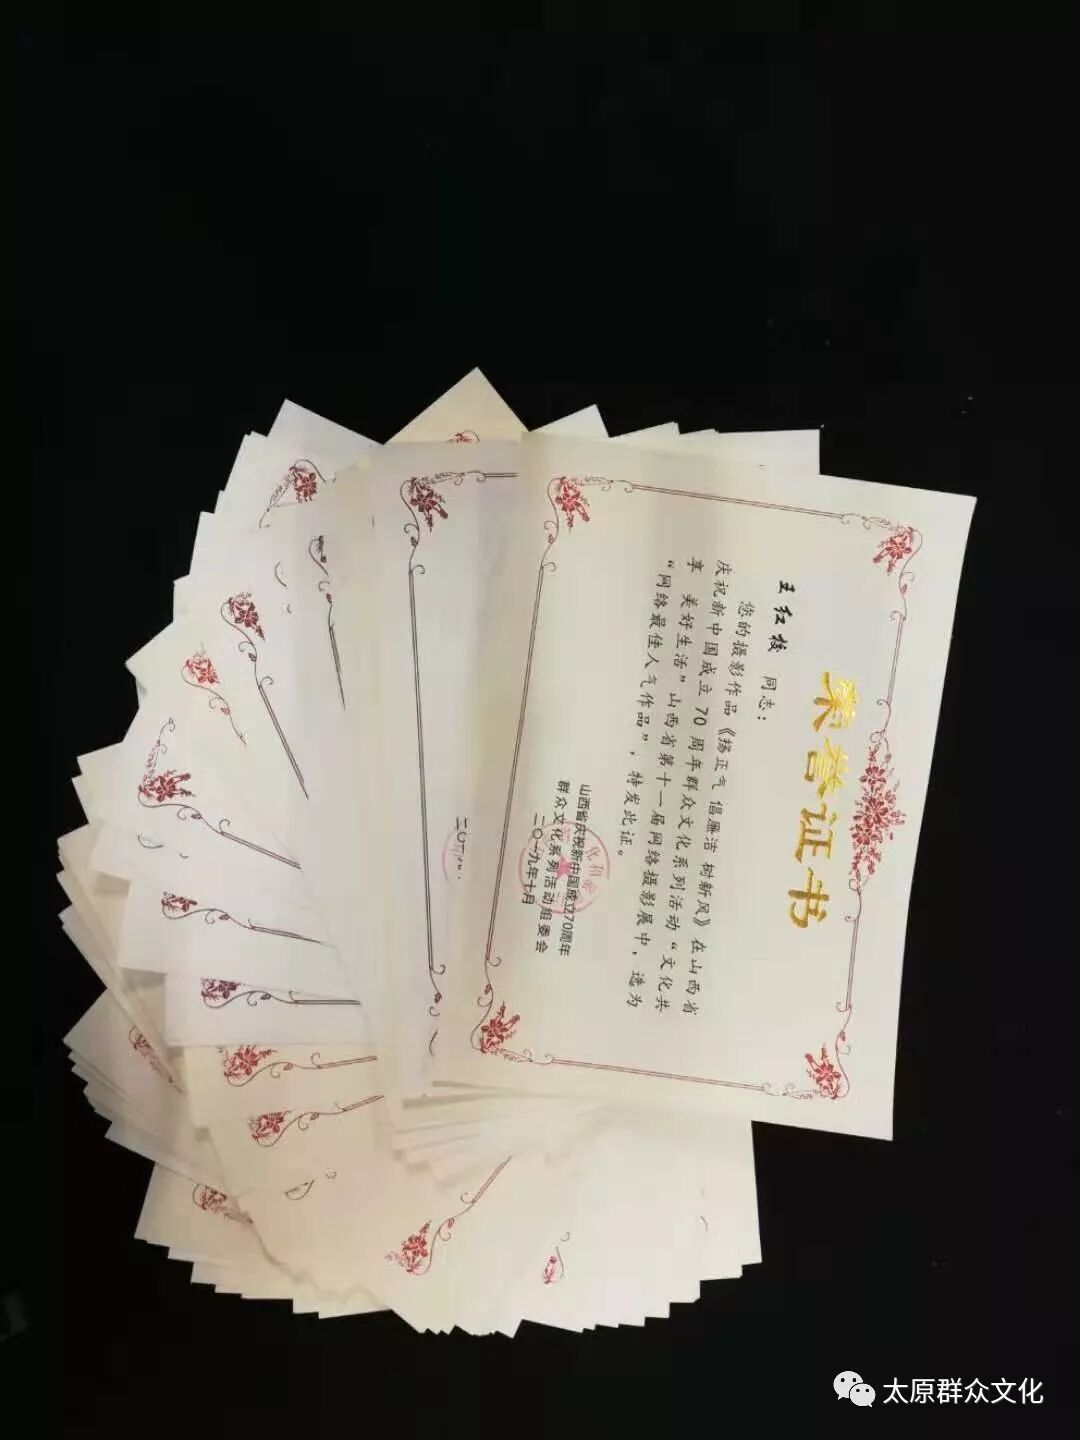 荣誉证书
王红梭 同志：
您的摄影作品《扬正气 倡廉洁 树新风》在山西省
庆祝新中国成立70周年群众文化系列活动“文化共
享 美好生活”山西省第十一届网络摄影展中，选为
“网络最佳人气作品”，特发此证。
山西省庆祝新中国成立70周年
群众文化系列活动组委会
二〇一九年七月
太原群众文化